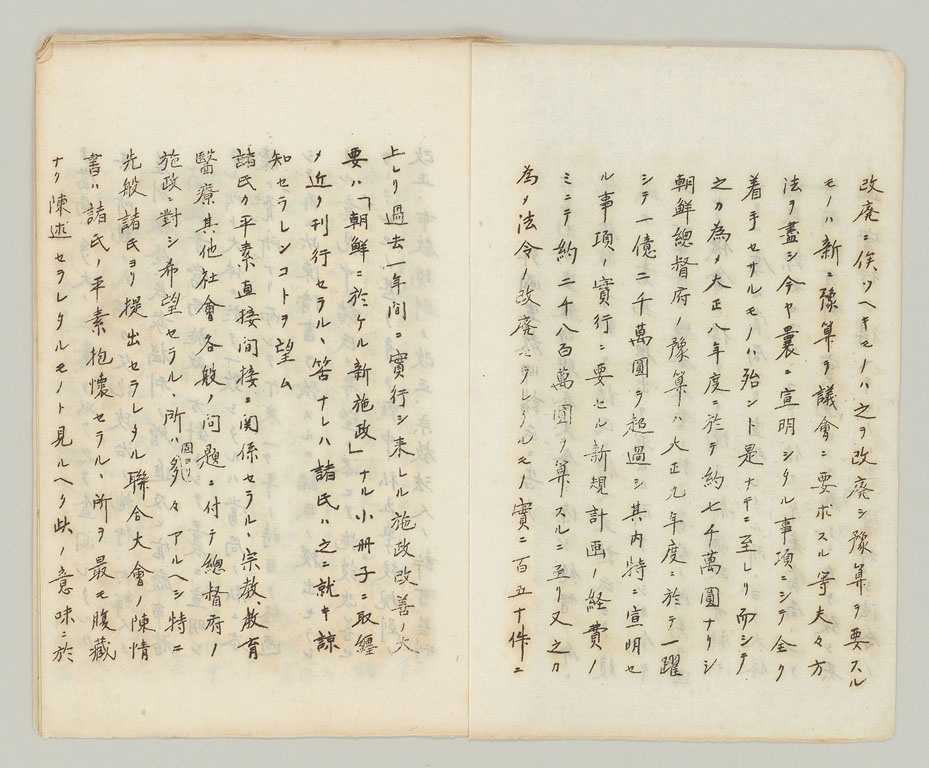 改廢ニ俟ツヘキモノハ之ヲ改廢シ豫算ヲ要スル
モノハ新ニ豫算ヲ議會ニ要求スル等夫々方
法ヲ盡シ今ヤ曩ニ宣明シタル事項ニシテ全ク
着手セサルモノハ殆ント是ナキニ至レリ而シテ
之カ為メ大正八年度ニ於テ約七千萬圓ナリシ
朝鮮總督府ノ豫算ハ大正九年度ニ於テ一躍
シテ一億二千萬圓ヲ超過シ其内特ニ宣明セ
ル事項ノ實行ニ要セル新規計画ノ経費ノ
ミニテ約二千八百萬圓ヲ算スルニ至リ又之カ
為メ法令ノ改廢セラレタルモノ實ニ百五十件ニ
上レリ過去一年間ニ實行シ来レル施政改善ノ大
要ハ「朝鮮ニ於ケル新施政」ナル小冊子ニ取纏
メ近ク刊行セラルヽ筈ナレハ諸氏ハ之ニ就キ諒
知セラレンコトヲ望ム
諸氏カ平素直接間接ニ関係セラルヽ宗教、教育
醫療其他社會各般ノ问題ニ付テ總督府ノ
施政ニ對シ希望セラルヽ所ハ固ヨリ多々アルヘシ特ニ
先般諸氏ヨリ提出セラレタル聯合大會ノ陳情
書ハ諸氏ノ平素抱懐セラルヽ所ヲ最モ腹藏
ナク陳述セラレタルモノト見ルヘク此ノ意味ニ於